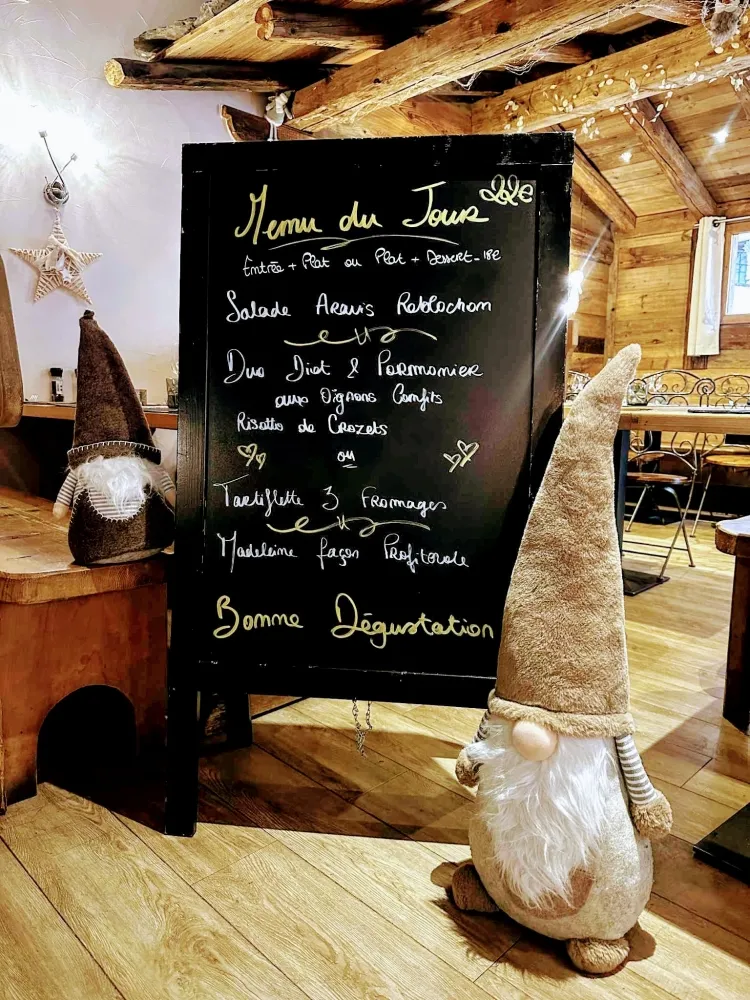 Menu du Jour 22€
Entrée + Plat ou Plat + Dessert - 18€
Salade Aravis Reblochon
Duo Diot & Pormonier
aux Oignons Confits
Risotto de Crozets
ou
Tartiflette 3 Fromages
Madeleine façon Profiterole
Bonne Dégustation